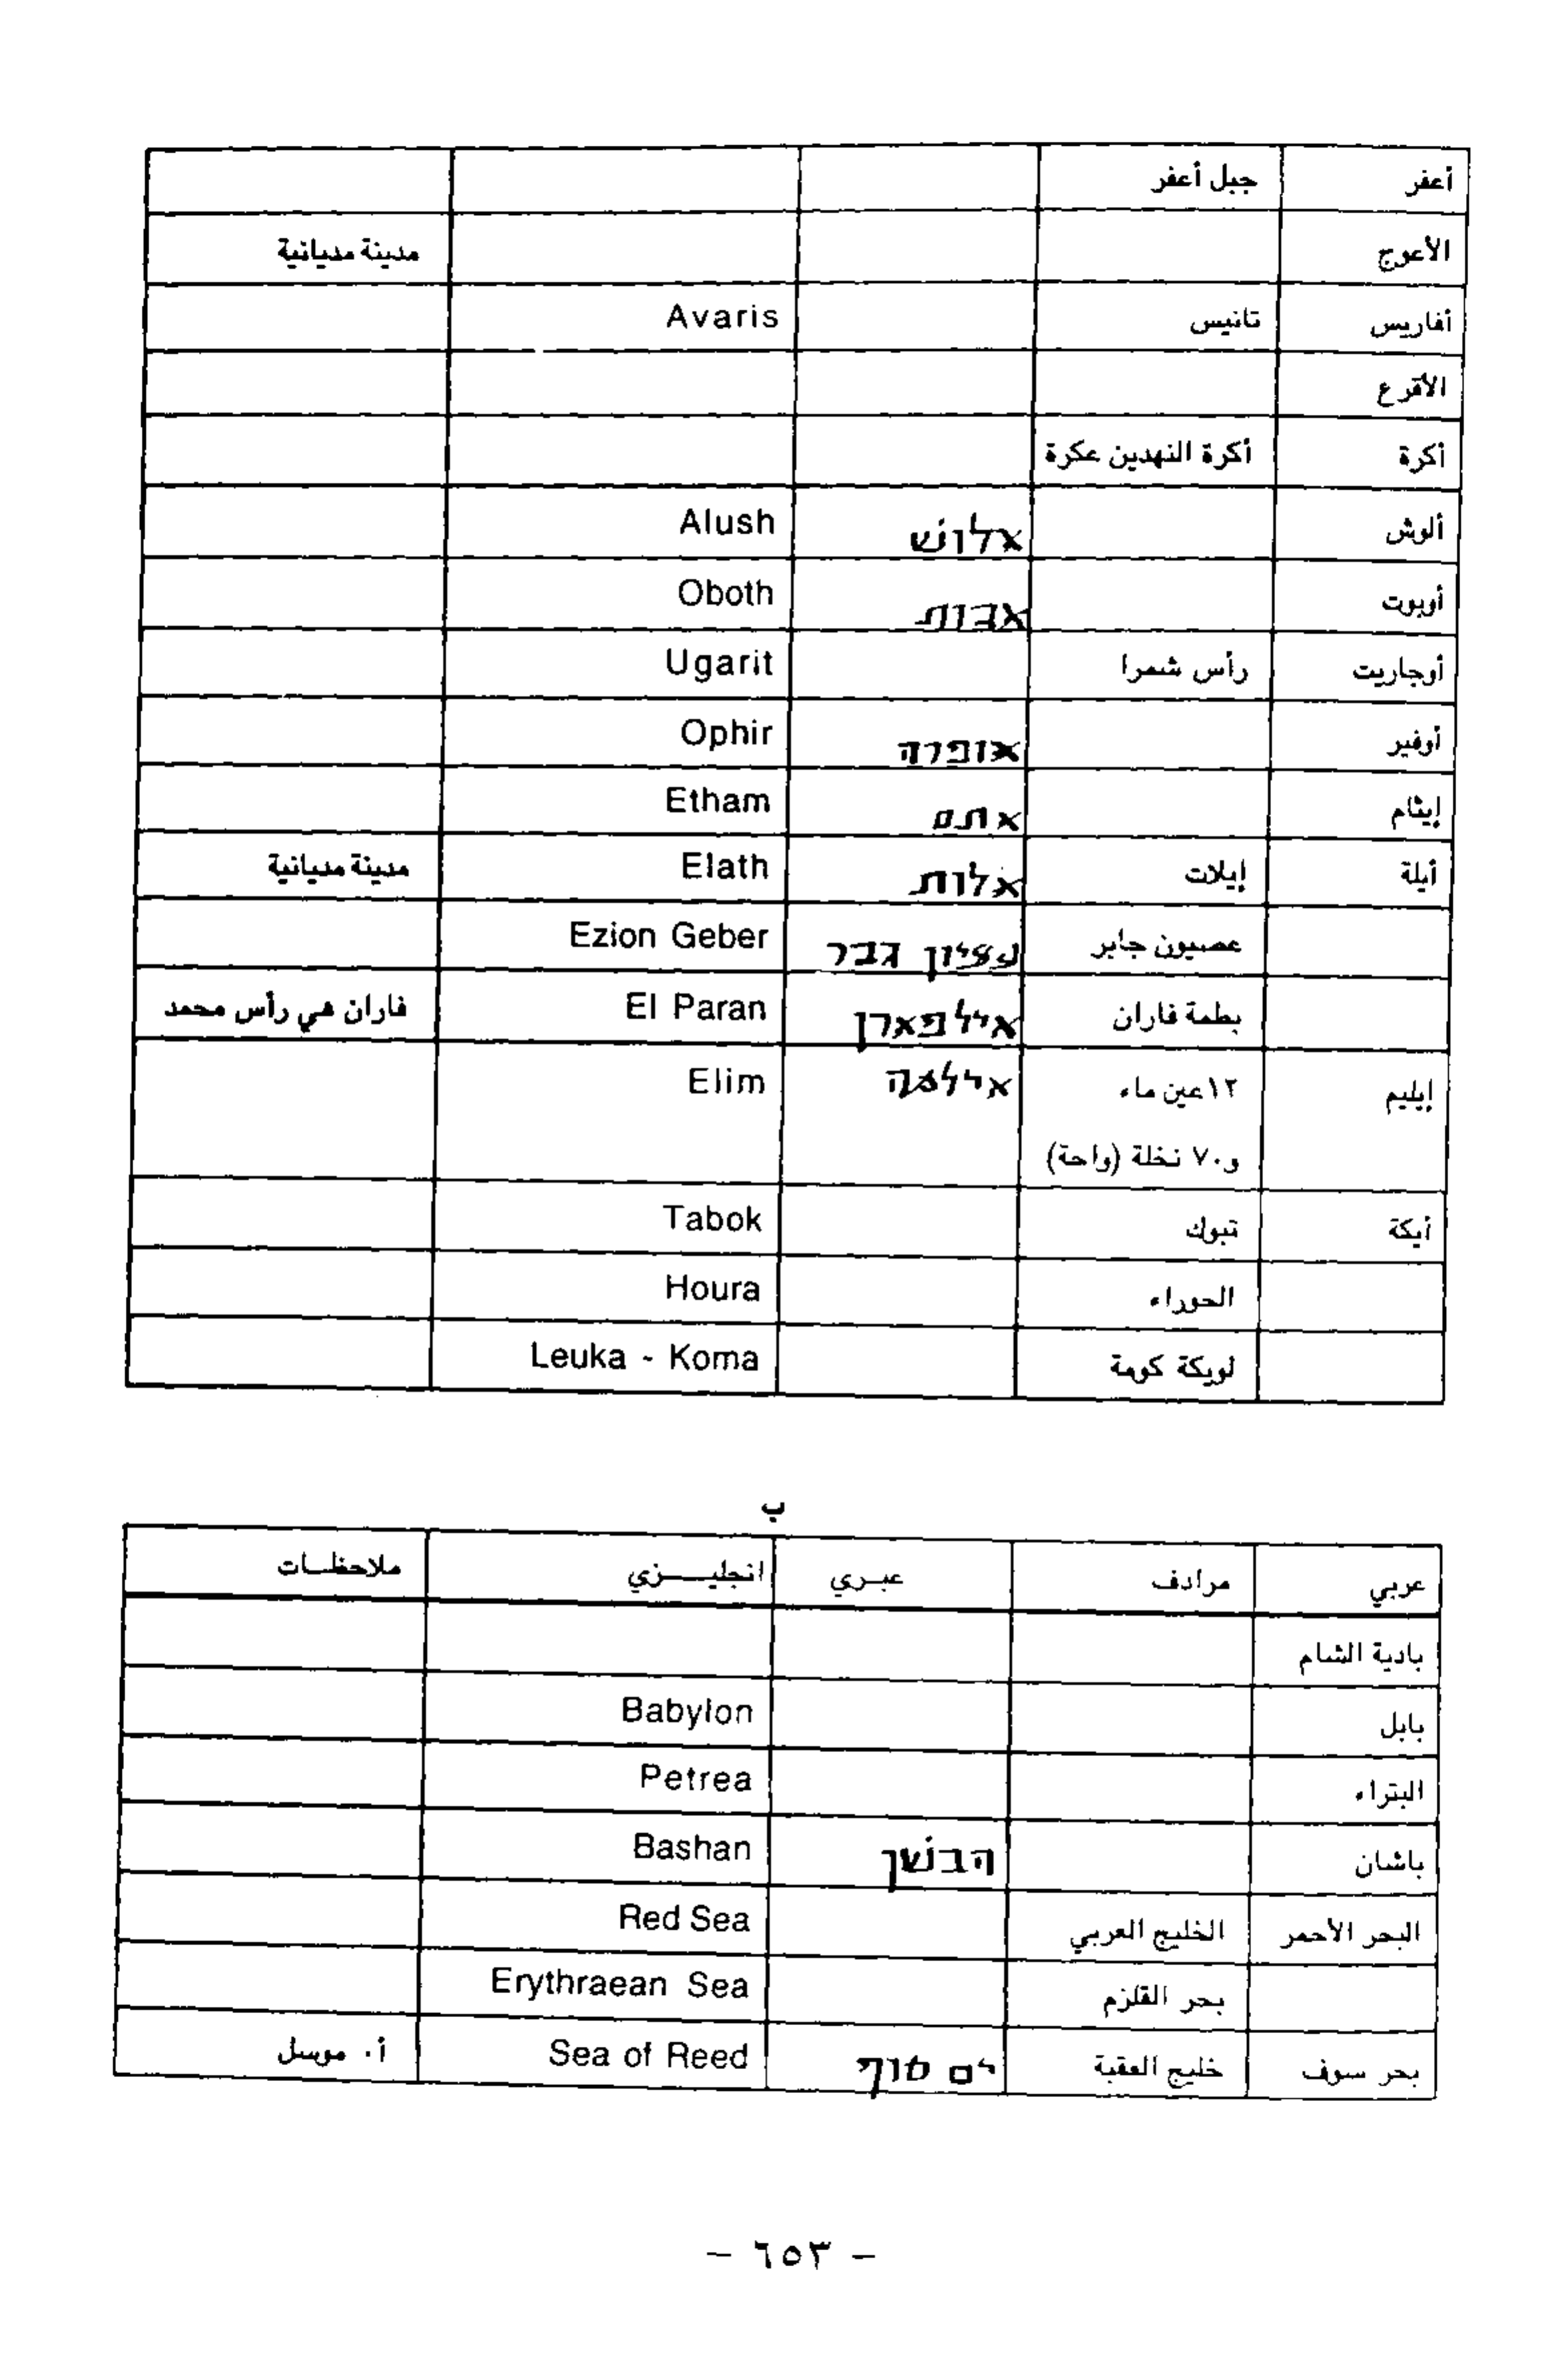 أعفر جبل أعفر
الأعوج مدينة مديانية
أفاريس تانيس Avaris
الأقرع
أكرة أكرة النهدين عكرة
ألوش אלושׁ Alush
أوبوت אבות Oboth
أوجاريت رأس شمرا Ugarit
أوفير אופרה Ophir
إيثام אתם Etham
أيلة إيلات אלות Elath مدينة مديانية
عصيون جابر עציון גבר Ezion Geber
بطمة فاران איל פארן El Paran فاران هي رأس محمد
إيليم ١٢عين ماء אילמה Elim
و٧٠ نخلة (واحة)
أيكة تبوك Tabok
الحوراء Houra
لويكة كومة Leuka - Koma
ب
عربي مرادف عبري انجليزي ملاحظات
بادية الشام
بابل Babylon
البتراء Petrea
باشان הבשׁן Bashan
البحر الأحمر الخليج العربي Red Sea
بحر القلزم Erythraean Sea
بحر سوف خليج العقبة ים סוף Sea of Reed أ. موسل
- ٦٥٣ -